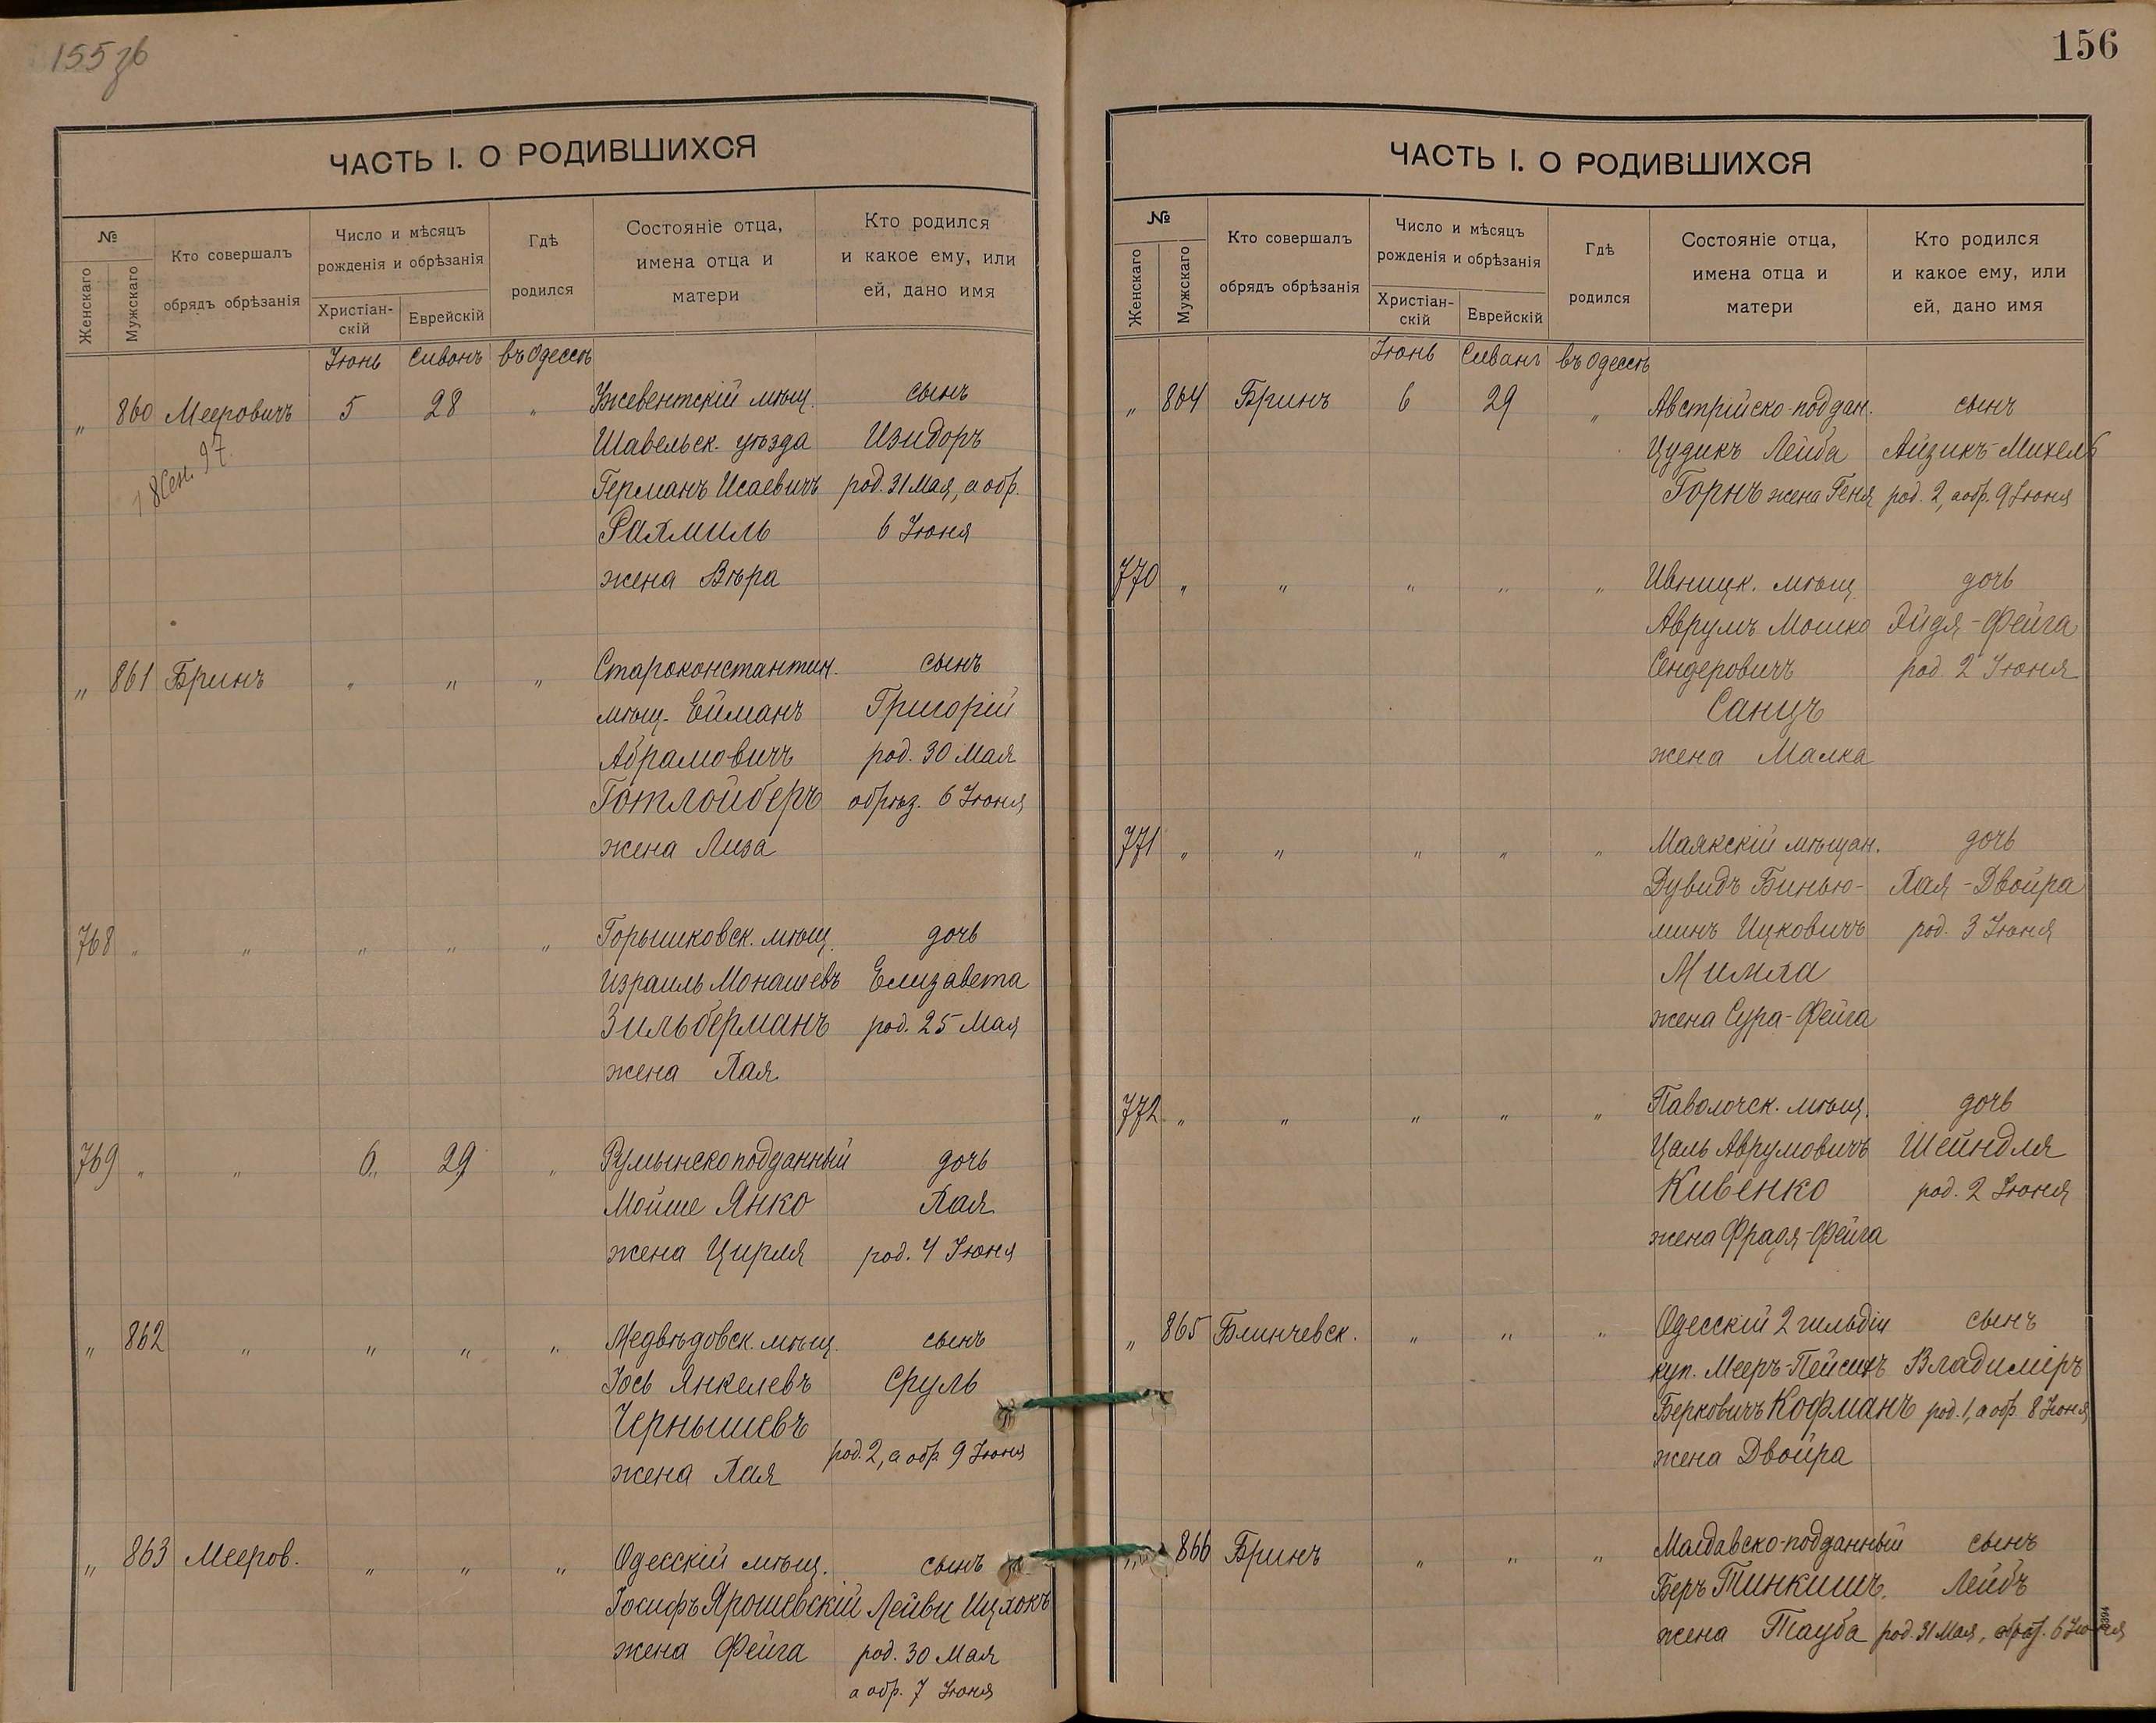 155 зв
ЧАСТЬ I. О РОДИВШИХСЯ
№
Женскаго
Мужскаго
Кто совершалъ
обрядъ обрѣзанія
Число и мѣсяцъ
рожденія и обрѣзанія
Христіан-
скій
Еврейскій
Гдѣ
родился
Состояніе отца,
имена отца и
матери
Кто родился
и какое ему, или
ей, дано имя
Іюнь Сиванъ въ Одессѣ
" 860 Мееровичъ 5 28 " Ужвентскій мѣщ. сынъ
18 Сен. 97.
Шавельск. уѣзда Изидоръ
Германъ Исаевичъ род. 31 Мая, а обр.
Рахмиль 6 Іюня
жена Вѣра
" 861 Бринъ " " " Староконстантин. сынъ
мѣщ. Ейманъ Григорій
Абрамовичъ род. 30 Мая
Готлойберъ обрѣз. 6 Іюня
жена Лиза
768 " " " " " Горышковск. мѣщ. дочь
Израиль Монашевъ Елизавета
Зильберманъ род. 25 Мая
жена Хая
769 " " 6 29 " Румынскоподданный дочь
Мойше Янко Хая
жена Цирля род. 4 Іюня
" 862 " " " " Медвѣдовск. мѣщ. сынъ
Іось Янкелевъ Сруль
Чернышевъ
род. 2, а обр. 9 Іюня
жена Хая
" 863 Мееров. " " " Одесскій мѣщ. сынъ
Іосифъ Ярошевскій Лейви Ицхокъ
жена Фейга род. 30 Мая
а обр. 7 Іюня
156
ЧАСТЬ I. О РОДИВШИХСЯ
№
Женскаго
Мужскаго
Кто совершалъ
обрядъ обрѣзанія
Число и мѣсяцъ
рожденія и обрѣзанія
Христіан-
скій
Еврейскій
Гдѣ
родился
Состояніе отца,
имена отца и
матери
Кто родился
и какое ему, или
ей, дано имя
Іюнь Сиванъ въ Одессѣ
" 864 Бринъ 6 29 " Австрійско-поддан. сынъ
Цудикъ Лейба Айзикъ-Михель
Горнъ жена Геня род. 2, а обр. 9 Іюня
770 " " " " " Ивницк. мѣщ. дочь
Аврумъ Мошко Эйдя-Фейга
Сендеровичъ род. 2 Іюня
Санцъ
жена Малка
771 " " " " " Маякскій мѣщан. дочь
Дувидъ Бинью- Хая-Двойра
минъ Ицковичъ род. 3 Іюня
Мимха
жена Сура-Фейга
772 " " " " " Паволочск. мѣщ. дочь
Цаль Аврумовичъ Шейндля
Кивенко род. 2 Іюня
жена Фрадя-Фейга
" 865 Блинчевск. " " " Одесскій 2 гильдіи сынъ
куп. Мееръ-Пейсихъ Владиміръ
Берковичъ Кофманъ род. 1, а обр. 8 Іюня
жена Двойра
" 866 Бринъ " " " Малдавско-подданный сынъ
Беръ Тинкишъ. Лейбъ
жена Тауба род. 31 Мая, обр. 6 Іюня